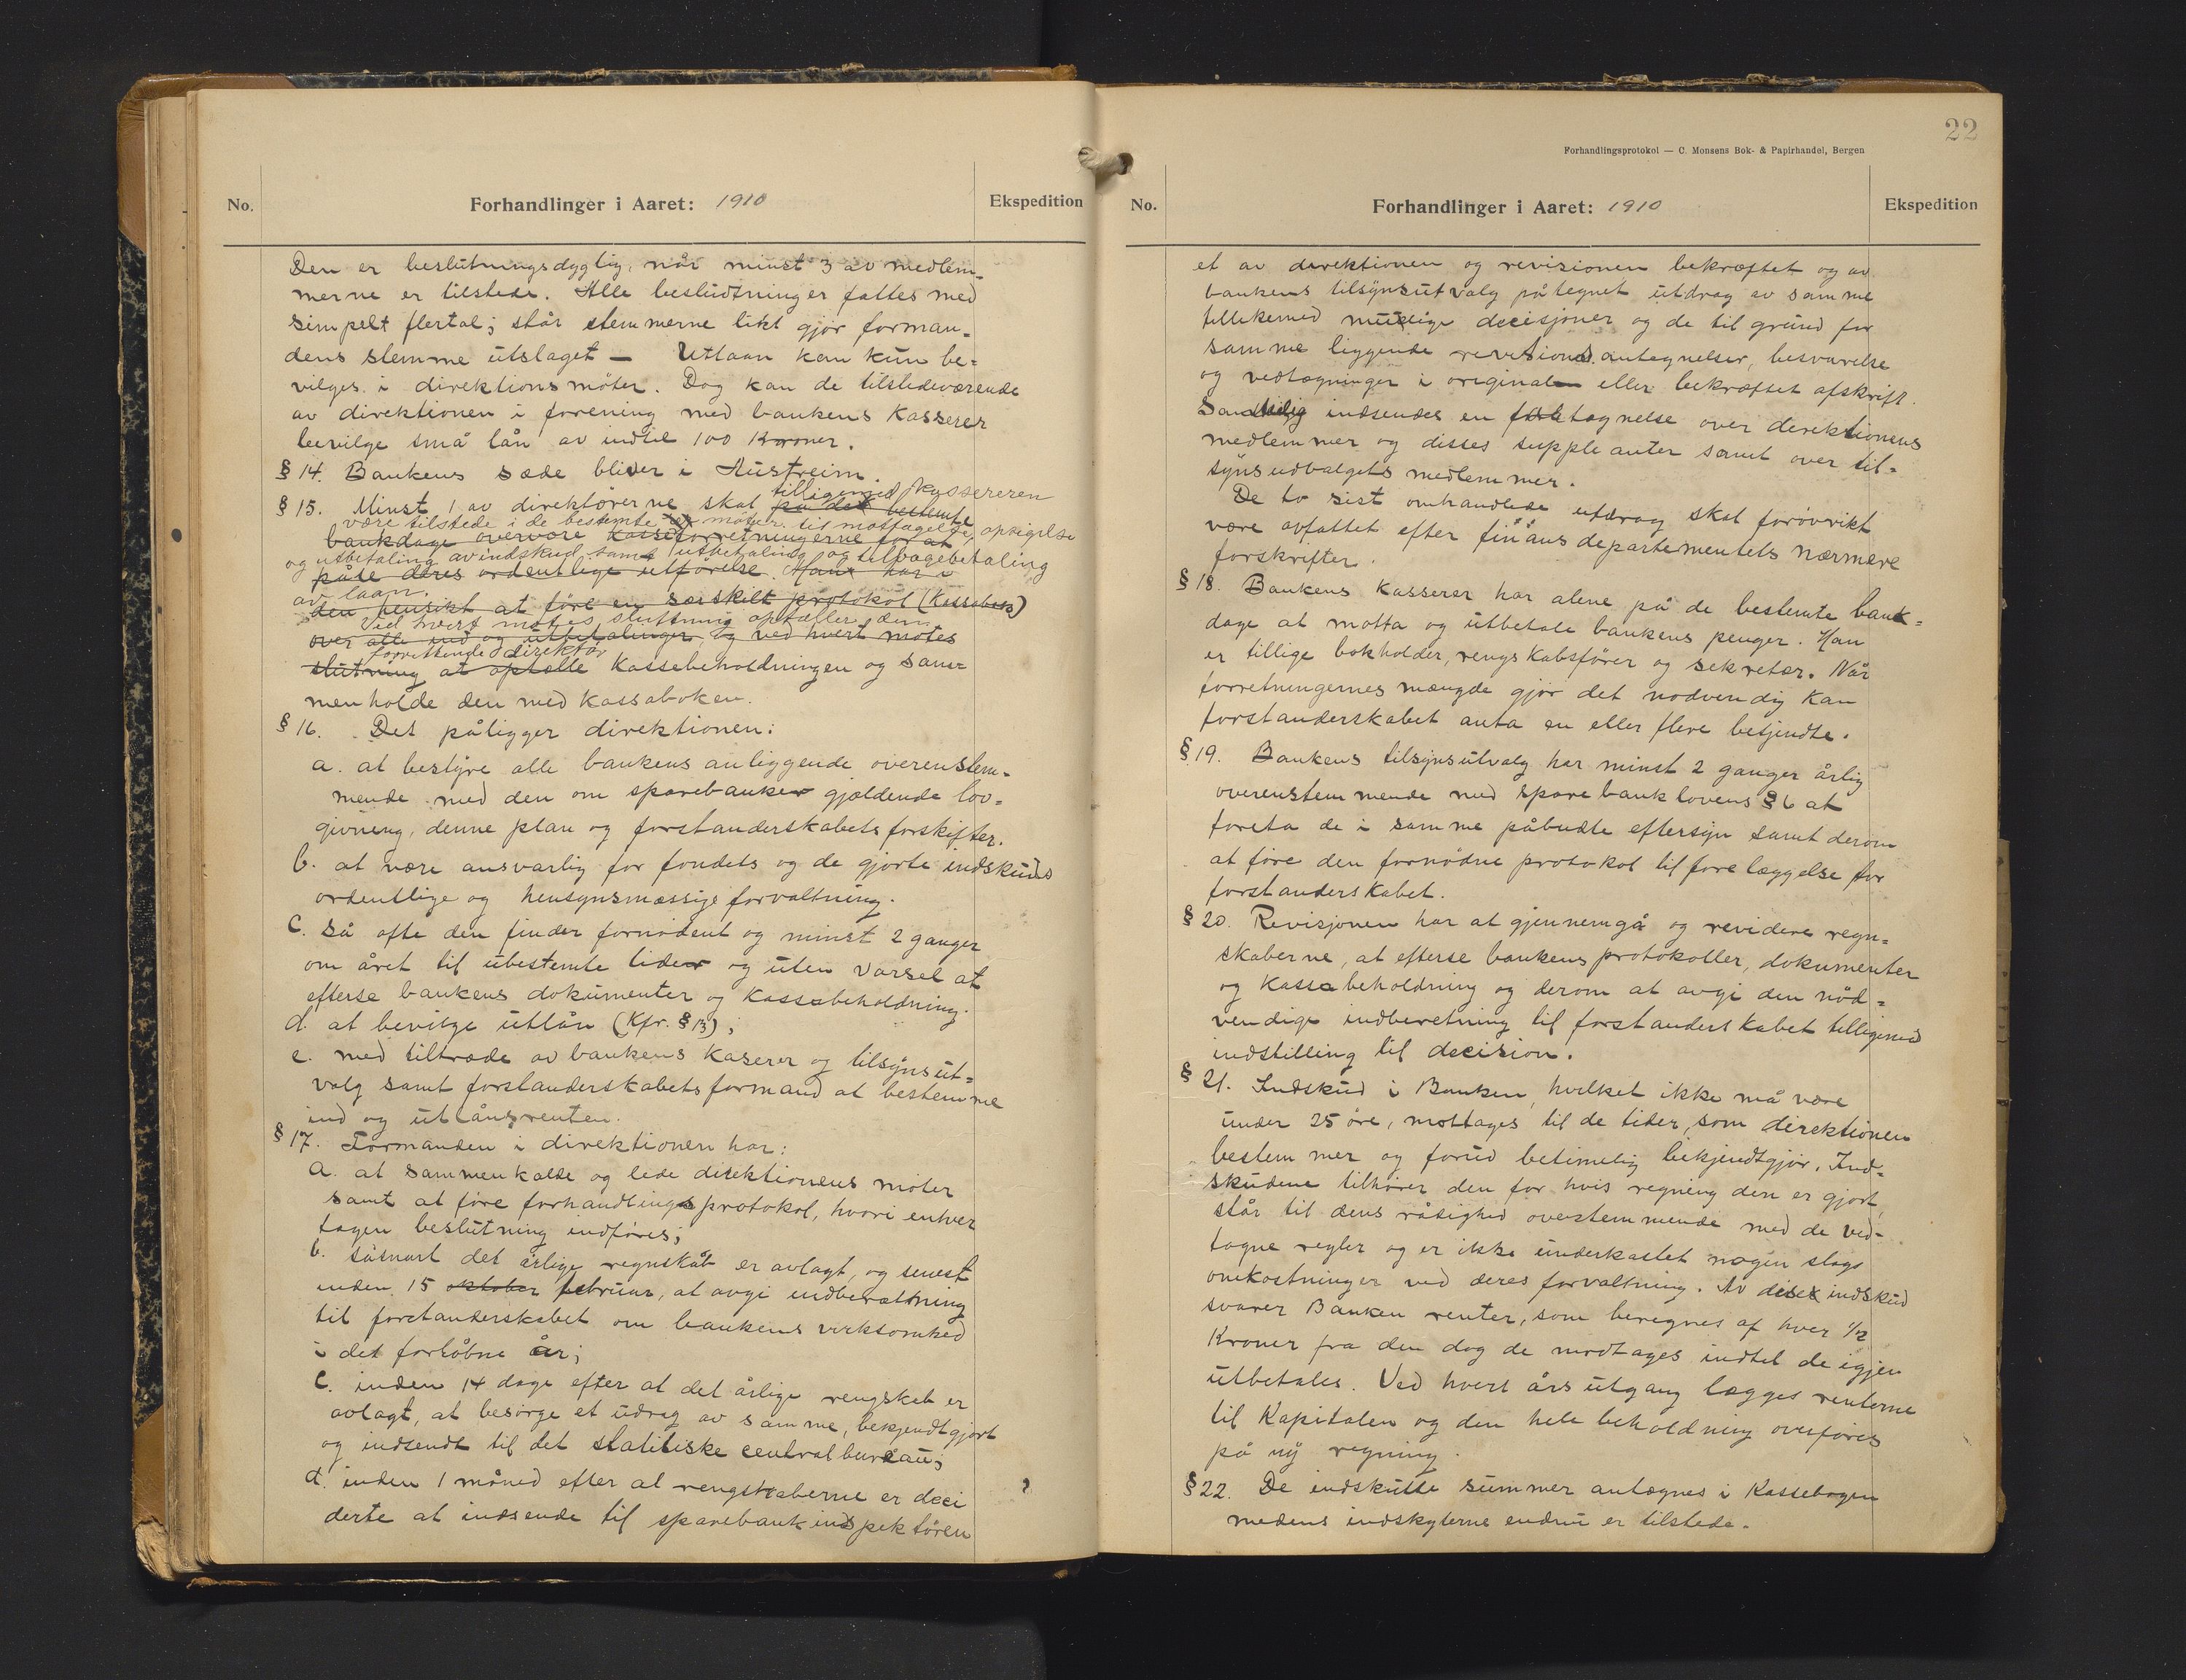 No.
Forhandlinger i Aaret: 1910
Ekspedition
Den er beslutningsdygtig, når minst 3 av medlem-
merne er tilstede. Alle besludtninger fattes med
simpelt flertal; står stemmerne likt gjør forman-
dens stemme utslaget — Utlaan kan kun be-
vilges i direktionsmöter. Dog kan de tilstedeværende
av direktionen i forening med bankens Kasserer
bevilge små lån av indtil 100 Kroner.
§ 14. Bankens sæde bliver i Austreim.
tilligemed kassereren
§ 15. Minst 1 av direktörerne skal på de bestemte
være tilstede i de bestemte møter til mottagelse, opsigelse
bankdage overvære kasseforretningerne for at
og utbetaling av indskud samt utbetaling og tilbagebetaling
påse deres ordentlige utförelse. Han har i
av laan.
den hensikt at före en særskilt protokol (Kassabok)
Ved hvert mötes sluttning optæller den
over alle ind og utbetalinger, og ved hvert mötes
forrettende direktör
slutning at optælle Kassebeholdningen og sam-
menholde den med Kassaboken.
§ 16. Det påligger direktionen:
a. at bestyre alle bankens anliggende overenstem-
mende med den om sparebanker gjældende lov-
givning, denne plan og forstanderskabets forskifter.
b. at være ansvarlig for fondets og de gjorte indskuds
ordentlige og hensynsmæssige forvaltning.
c. så ofte den finder fornödent og minst 2 ganger
om året til ubestemte tider og uten varsel at
efterse bankens dokumenter og Kassabeholdning.
d. at bevilge utlån (Kfr. § 13);
e. med tiltræde av bankens Kaserer og tilsynsut-
valg samt forstanderskabets formand at bestemme
ind og utlånsrenten.
§ 17. Formanden i direktionen har:
a. at sammenkalde og lede direktionens möter
samt at före forhandlingsprotokol, hvori enhver
tagen beslutning indföres;
b. såsnart det årlige regnskab er avlagt, og senest
inden 15 oktober februar, at avgi indberætning
til forstanderskabet om bankens virksomhed
i det forløbne år;
c. inden 14 dage efter at det årlige rengskab er
avlagt, at besörge et udrag av samme, bekjendtgjort
og indsendt til det statitiske centralbureau;
d. inden 1 måned efter at rengskaberne er deci
derte at indsende til sparebankindspektören
22
Forhandlingsprotokol — C. Monsens Bok- & Papirhandel, Bergen
No.
Forhandlinger i Aaret: 1910
Ekspedition
et av direktionen og revisionen bekræftet og av
bankens tilsynsutvalg påtegnet utdrag av samme
tillikemed mulige decisjoner og de til grund for
samme liggende revisions antegnelser, besvarelse
og vedtegninger i original eller bekræftet afskrift.
indsendes en fortegnelse over direktionens
medlemmer og disses suppleanter samt over til-
synsudvalgets medlemmer.
De to sist omhandlede utdrag skal forövrikt
være avfattet efter finansdepartementets nærmere
forskrifter.
§ 18. Bankens Kasserer har alene på de bestemte bank-
dage at motta og utbetale bankens penger. Han
er tillige bokholder, rengskabsfører og sekretær. Når
forretningernes mængde gjör det nodvendig kan
forstanderskabet anta en eller flere betjendte.
§ 19. Bankens tilsynsutvalg har minst 2 ganger årlig
overenstemmende med sparebanklovens § 6 at
foreta de i samme påbudte eftersyn samt derom
at före den fornödne protokol til forelæggelse for
forstanderskabet.
§ 20. Revisjonen har at gjennemgå og revidere regn-
skaberne, at efterse bankens protokoller, dokumenter
og Kassabeholdning og derom at avgi den nöd-
vendige indberetning til forstanderskabet tilligemed
indstilling til decision.
§ 21. Indskud i Banken, hvilket ikke må være
under 25 öre, mottages til de tider, som direktionen
bestemmer og forud betimelig bekjendtgjör. Ind-
skudene tilhörer den for hvis regning den er gjort,
står til dens rådighed overstemmende med de ved-
tagne regler og er ikke underkastet nogen slags
omkostninger ved deres forvaltning. Av disse indskud
svarer Banken renter, som beregnes af hver 1/2
Kroner fra den dag de modtages indtil de igjen
utbetales. Ved hvert års utgang lægges renterne
til Kapitalen og den hele beholdning overföres
på ny regning.
§ 22. De indskutte summer antegnes i Kassebogen
medens indskyterne endnu er tilstede.